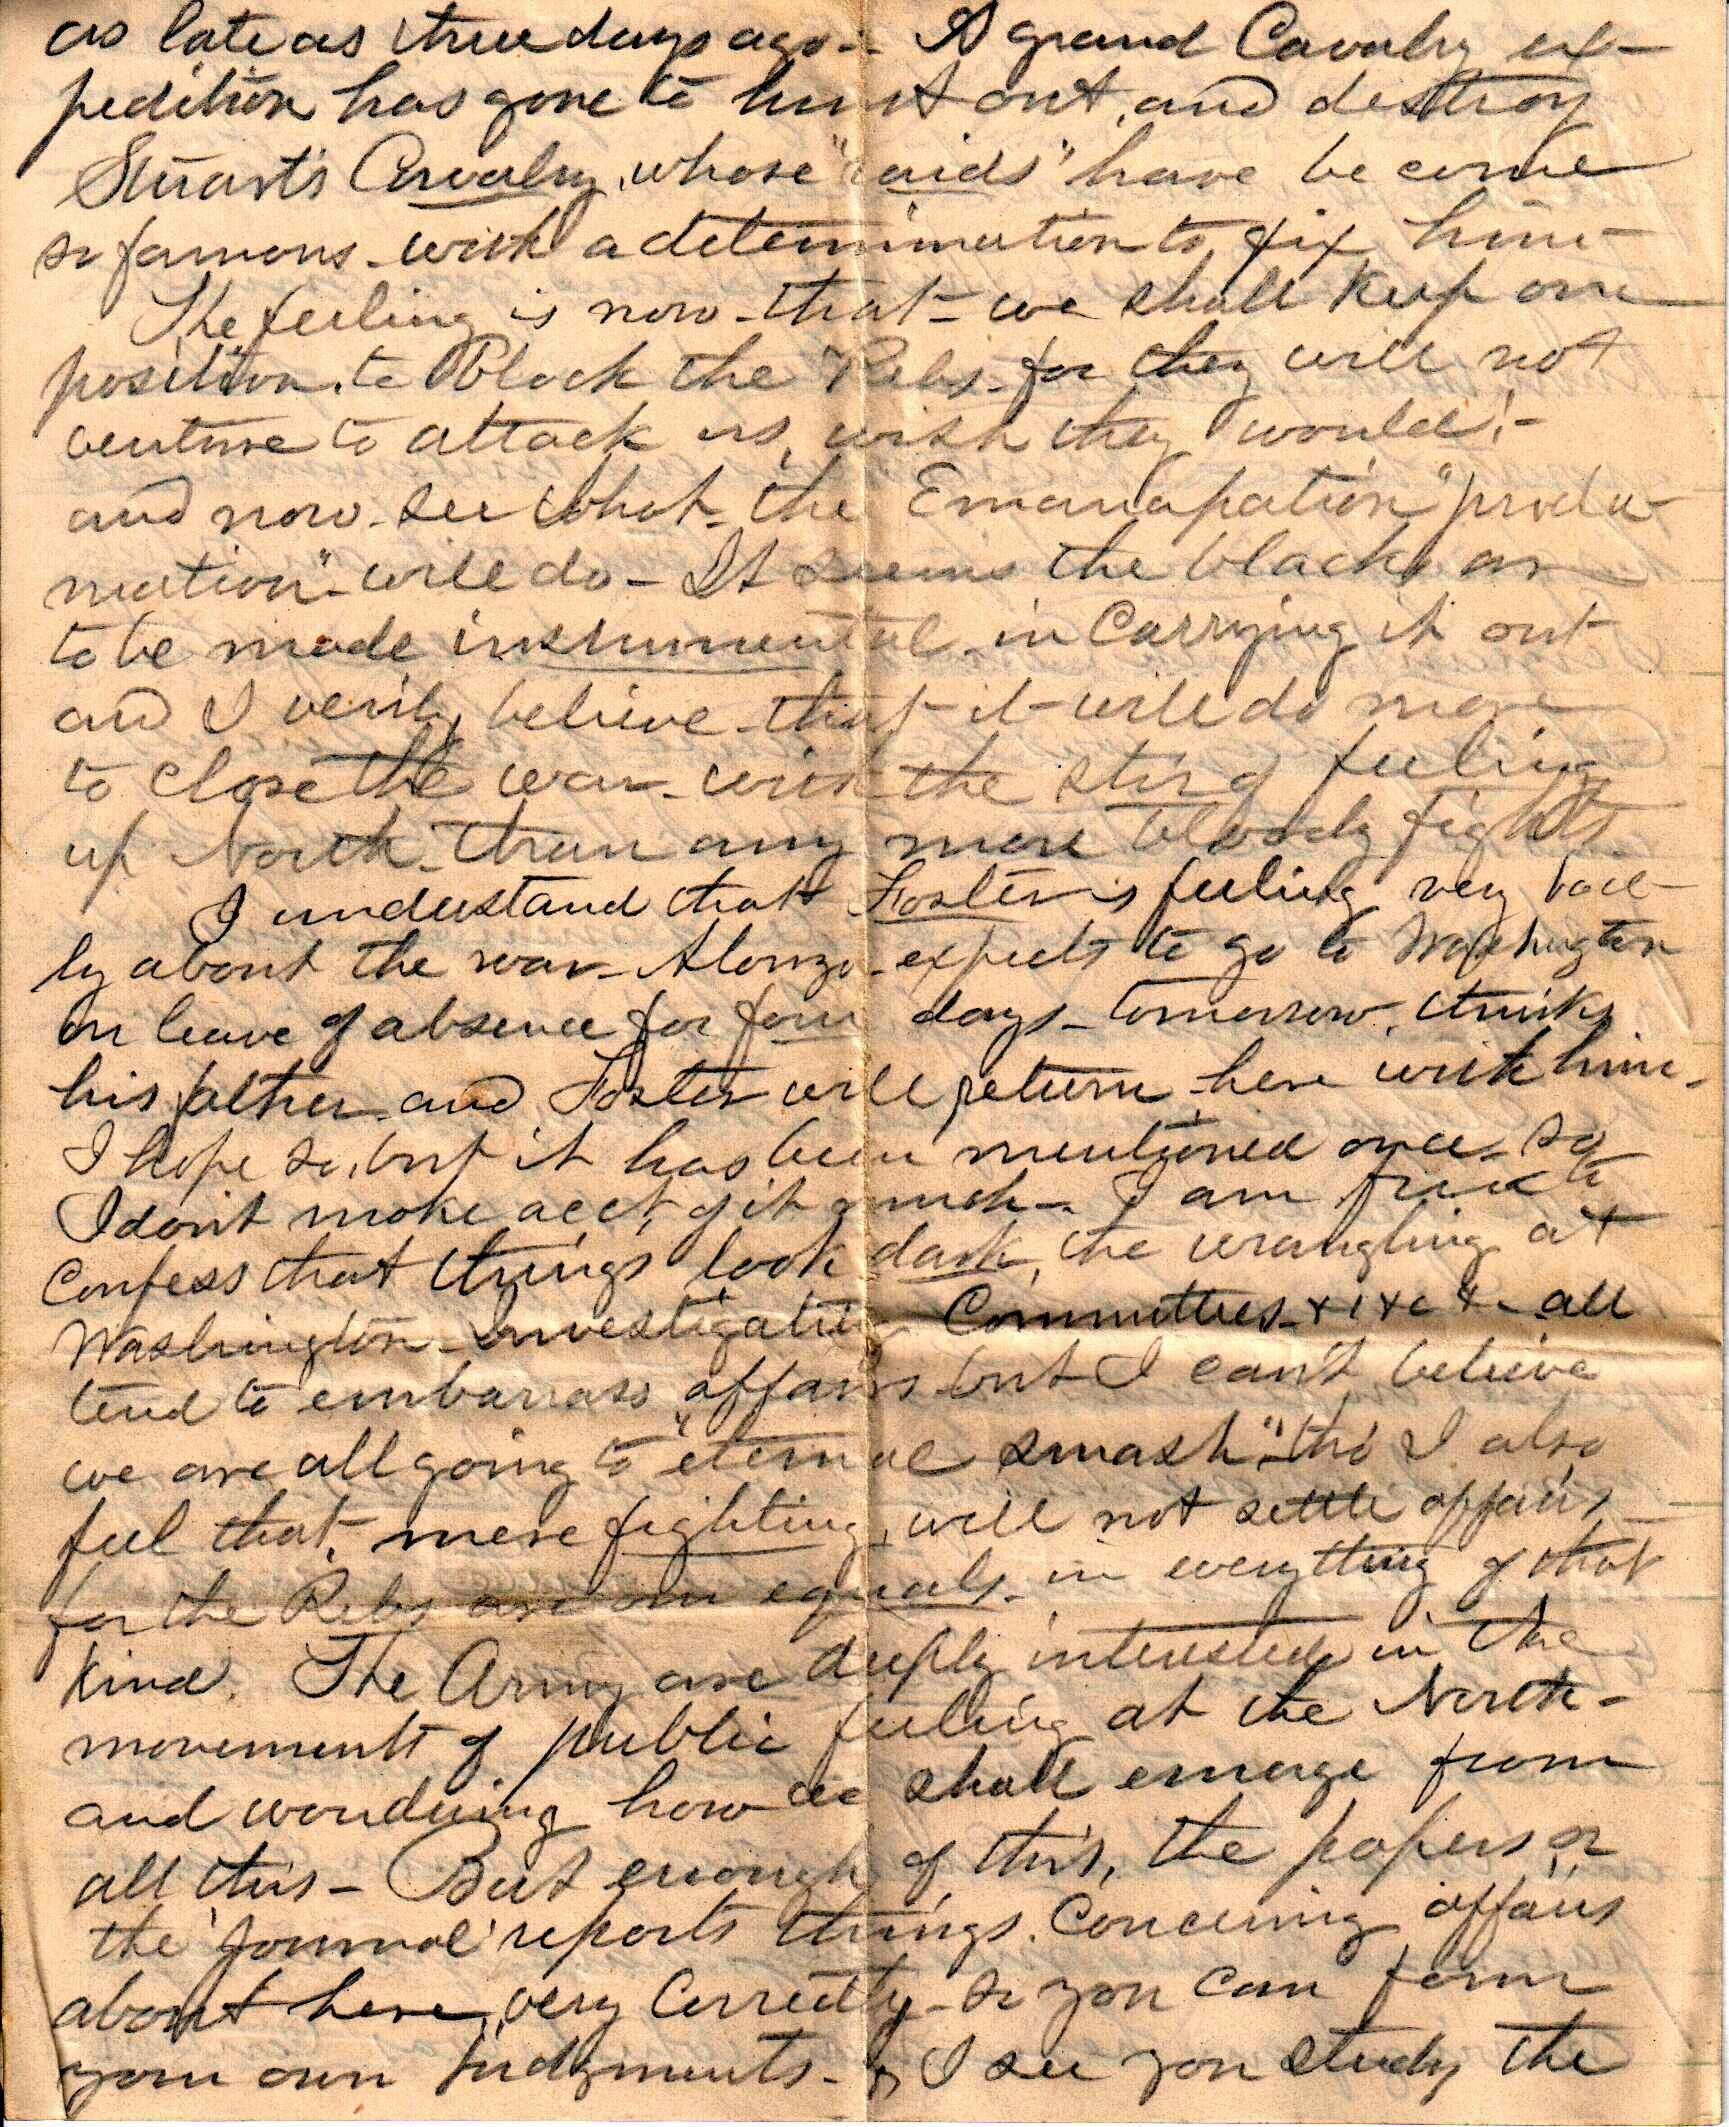 as late as three days ago — A grand Cavalry ex-
pedition has gone to hunt out, and destroy
Stuart's Cavalry, whose "raids" have become
so famous - with a determination to fix him -
The feeling is now - that - we shall keep our
position, to block the Rebs - for they will not
venture to attack us, wish they would! -
and now - see what - the Emanapation "procla-
mation" will do - It seems the blacks are
to be made instrumental - in Carrying it out
and I verily believe - that - it - will do more
to close the war - with the stir of feeling
up North - than any more bloody fights
I understand that Foster is feeling very bad-
ly about the war - Alonzo - expects to go to Washington
on leave of absence for four days - tomorrow, thinks
his father - and Foster will return here with him -
I hope so, but it has been mentioned once - so
I don't make acct, of it much - I am free to
Confess that things look dark, the wrangling at
Washington - Investigating Committees - & & & - all
tend to embarrass affairs - but I can't believe
we are all going to "eternal smash" - tho' I also
feel that, mere fighting, will not settle affairs -
for the Rebs are our equals - in everything of that
kind. The Army are deeply interested in the
movement of public feeling at the North -
and wondering how we shall emerge from
all this - But enough of this, the papers or
the 'Journal' reports things. Concerning affairs
about here, very Correctly - so you can form
your own judgments - I see you study the